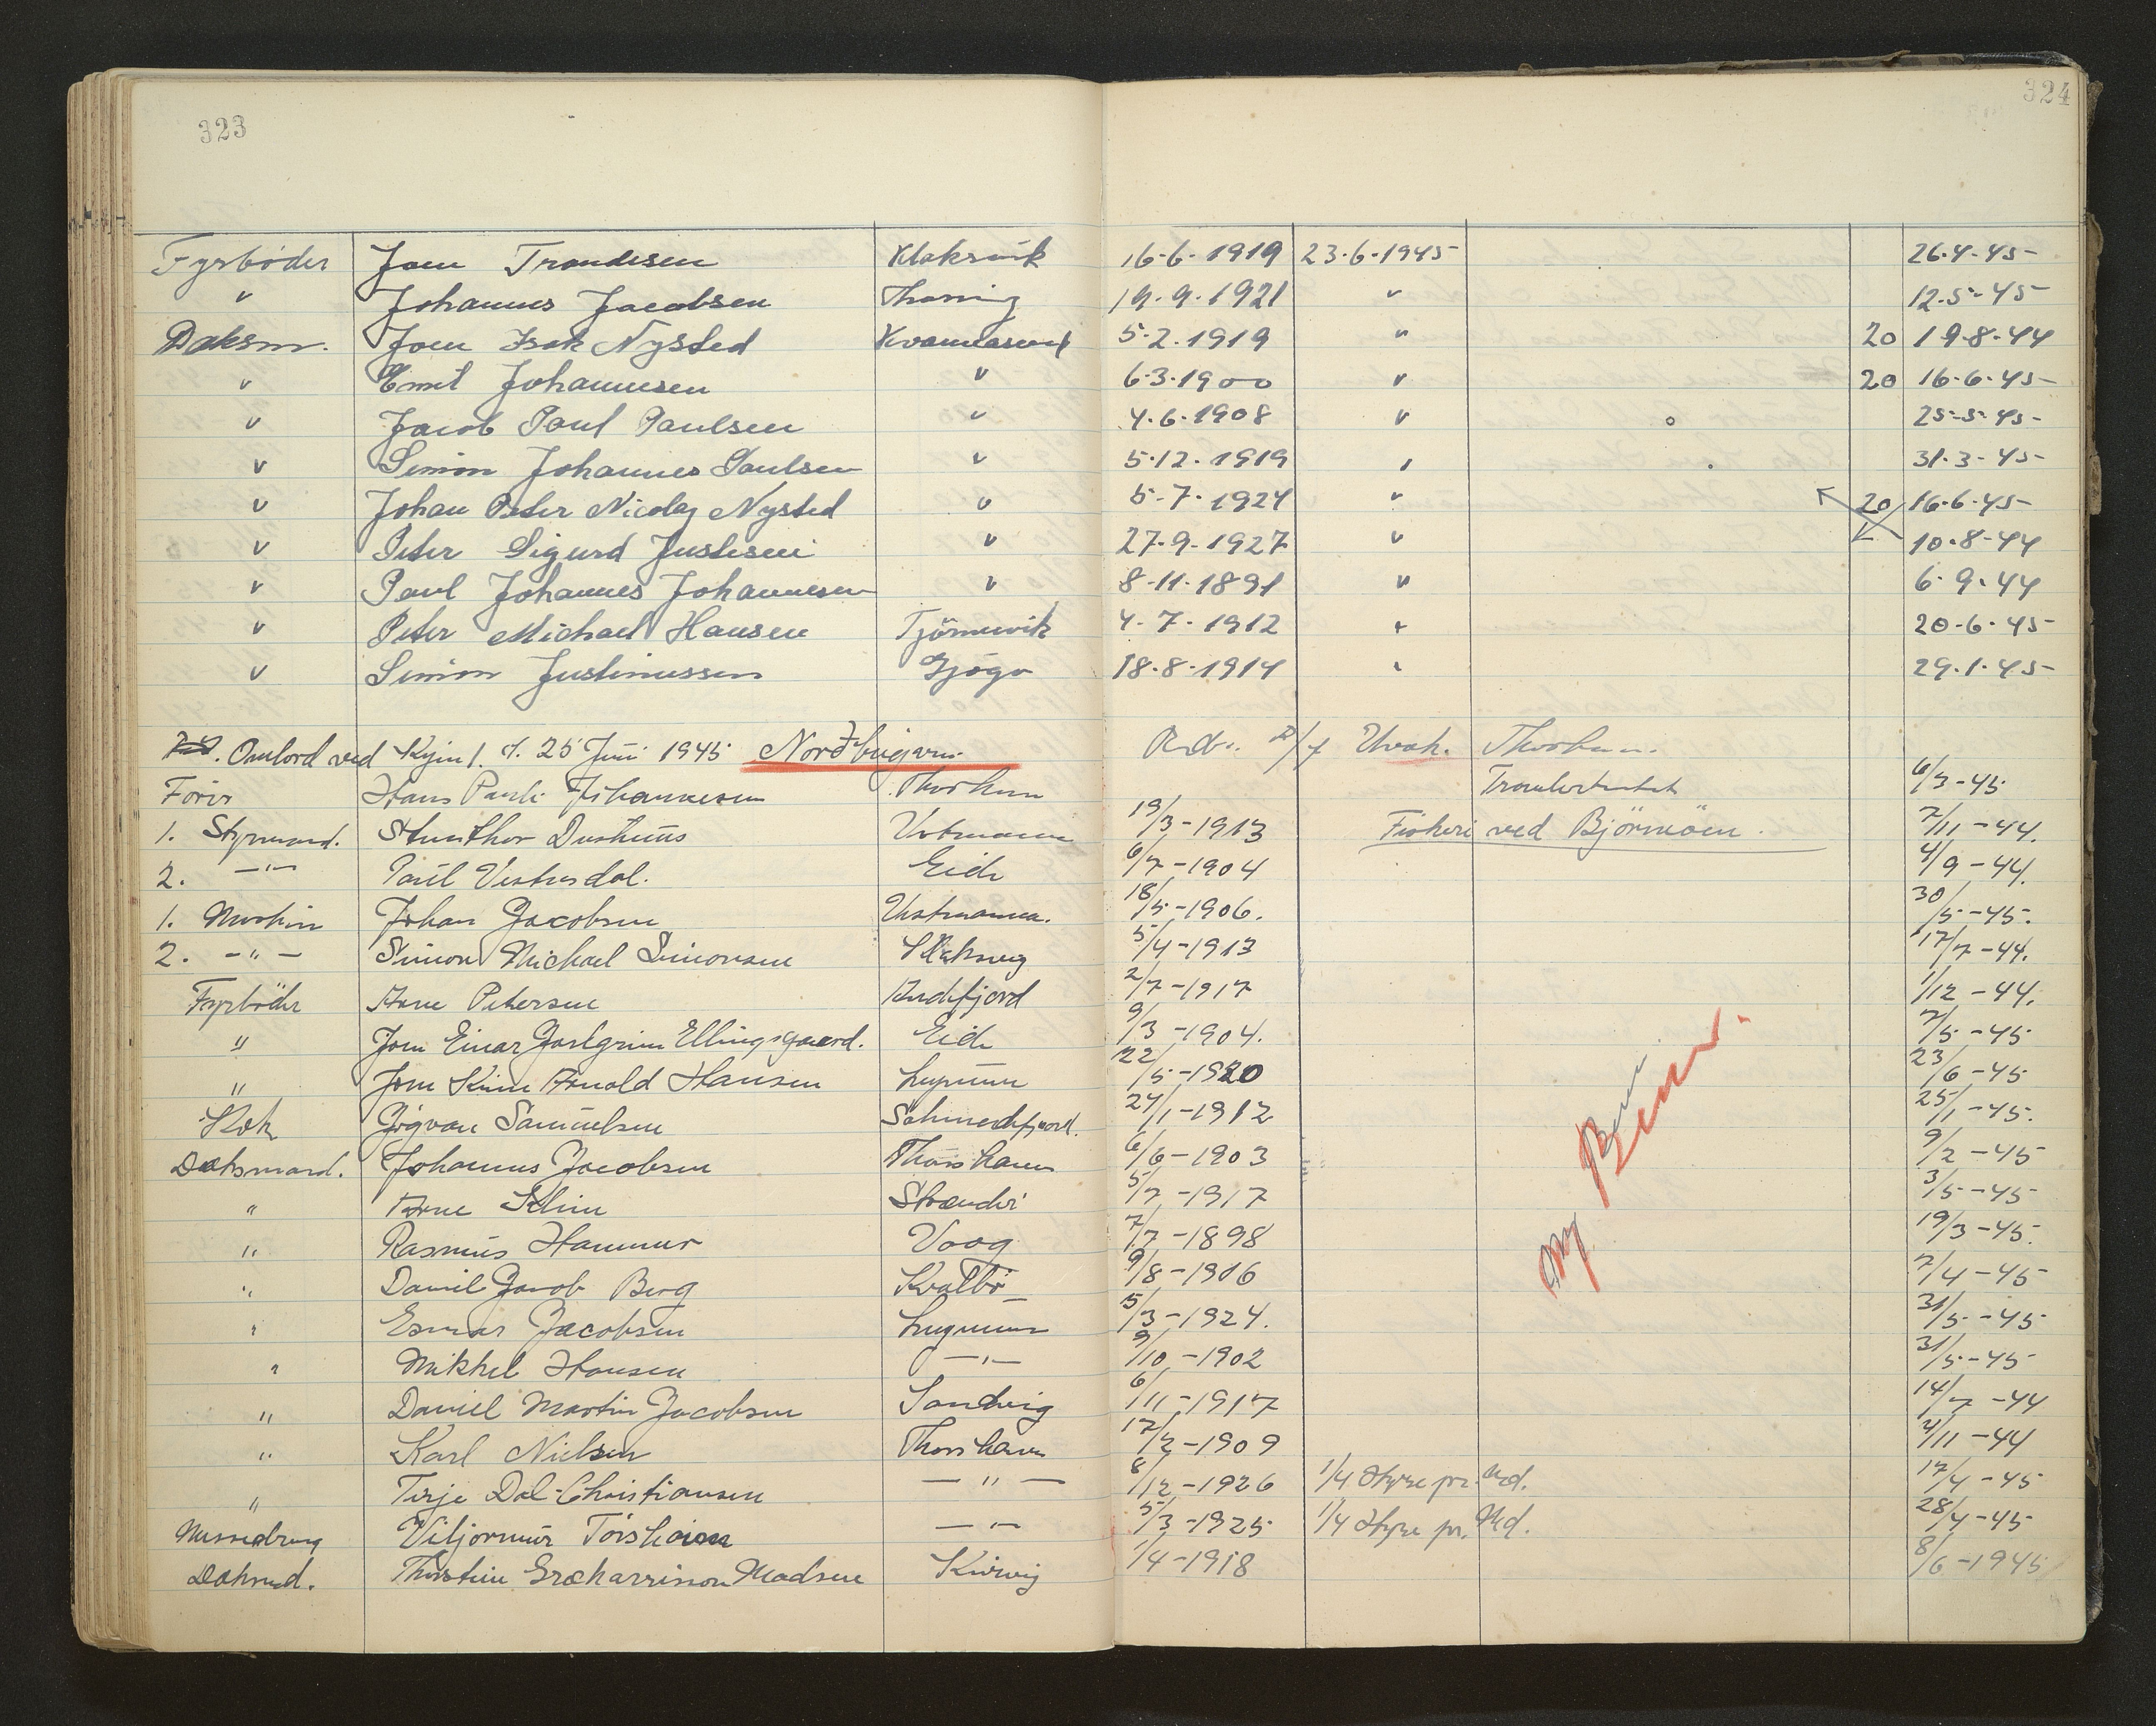 323
324
Fyrböder Joen Trondesen Klaksvik 16-6-1919 23.6.1945 26.4-45
" Johannes Jacobsen 19.9.1921 " 12.5-45
Daksm. Joen Isak Nysted Kvannasund 5.2.1919 " 20 19.8.44
" Emil Johannesen " 6.3.1900 " 20 16.6.45
" Jacob Paul Paulsen " 4.6.1908 " 25-5-45
" Simon Johannes Paulsen " 5.12.1919 " 31.3-45
" Johan Peter Nicolaj Nysted " 5-7-1924 " 20 16.6.45
" Peter Sigurd Justesen " 27.9.1927 " 10.8-44
" Paul Johannes Johannesen " 8-11-1891 " 6.9.44
" Peter Michael Hansen Tjörnuvik 4.7.1912 " 20-6-45
" Simon Justinussen Gjógv 18.8.1914 " 29.1.45
Omlord ved 25 Juni 1945 Nordbugvin 2/7 Thorshavn.
Förer Hans Pauli Johannesen Thorshavn 6/3-45
1. Styrmand. Vestmanna 19/3-1913 Fiskeri ved Björnöen. 7/11-44.
2. -"- Paul Vestursdal. Eide 6/7-1904 4/9-44.
1. Maskin Johan Jacobsen Vestmanna. 18/5-1906. 30/5-45.
2. -"- Simon Michael Simonsen 5/4-1913 17/7-44.
Fyrböder Arne Petersen Andefjord 2/7-1917 1/12-44.
" Joen Einar Joslgrim Ellingsgaard. Eide 9/3-1904. 7/5-45
" Joen Arnold Hansen 22/5-1920 23/6-45
Kok Jógvan Samuelsen 24/1-1912 25/1-45.
Daksmand. Johannes Jacobsen Thorshavn 6/6-1903 9/2-45
" Arne Klein Strender 5/7-1917 3/5-45
" Rasmus Hammer Vaag 7/7-1898 19/3-45.
" Daniel Jacob Berg Kvalbö 9/8-1906 7/4-45
" Esmar Jacobsen 5/3-1924. 31/5-45
" Mikkel Hansen -"- 9/10-1902 31/5-45
" Daniel Martin Jacobsen Sandvig 6/11-1917 14/7-44
" Karl Nielsen Thorshavn 17/2-1909 2/11-44
" Terje Dal-Christiansen -"- 8/12-1926 1/4 Hyre pr. Md. 17/4-45
Messedreng Viljormur Tórshavn -"- 5/3-1925 1/4 Hyre pr. Md. 28/4-45
Daksmd. Thorstein Madsen Kirvig 1/4-1918 8/6-1945